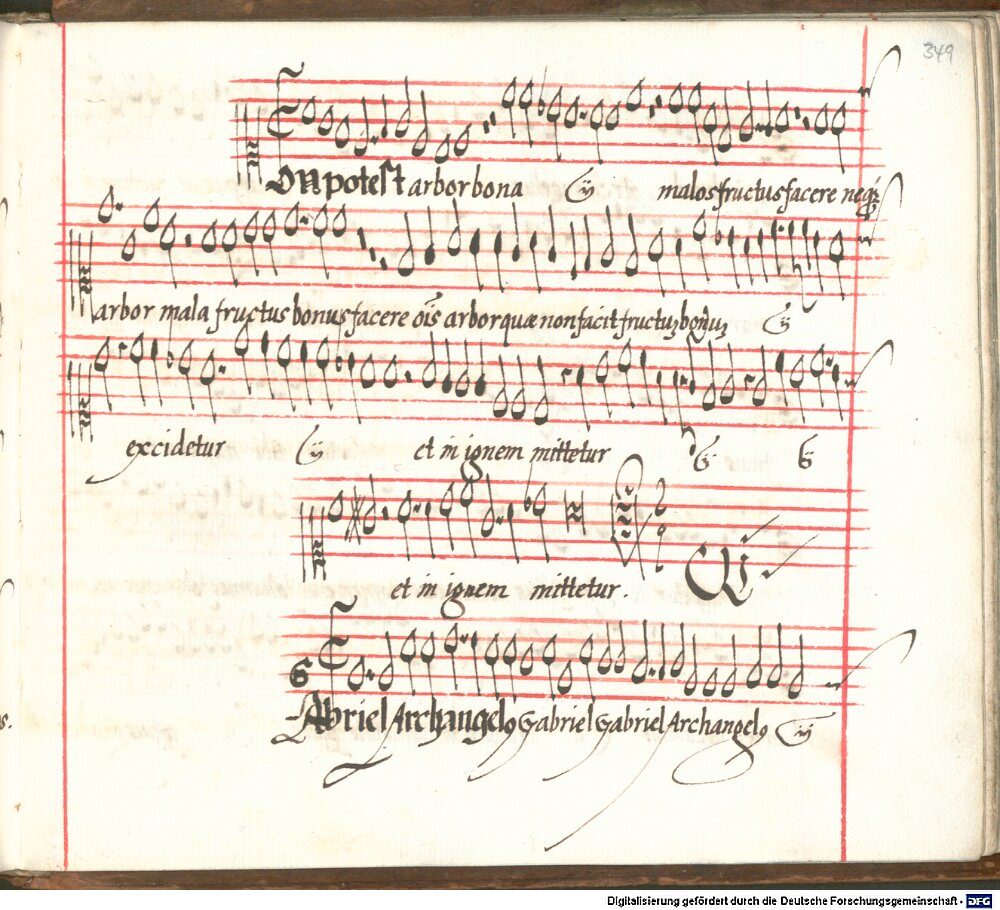 349
On potest arbor bona ij malos fructus facere neqz
arbor mala fructus bonus facere ois arbor quæ non facit fructuz bonuz ij
excidetur ij et in ignem mittetur ij ij
et in ignem mittetur.
Abriel Archangelo Gabriel Gabriel Archangelo ij
s.
Digitalisierung gefördert durch die Deutsche Forschungsgemeinschaft - DFG